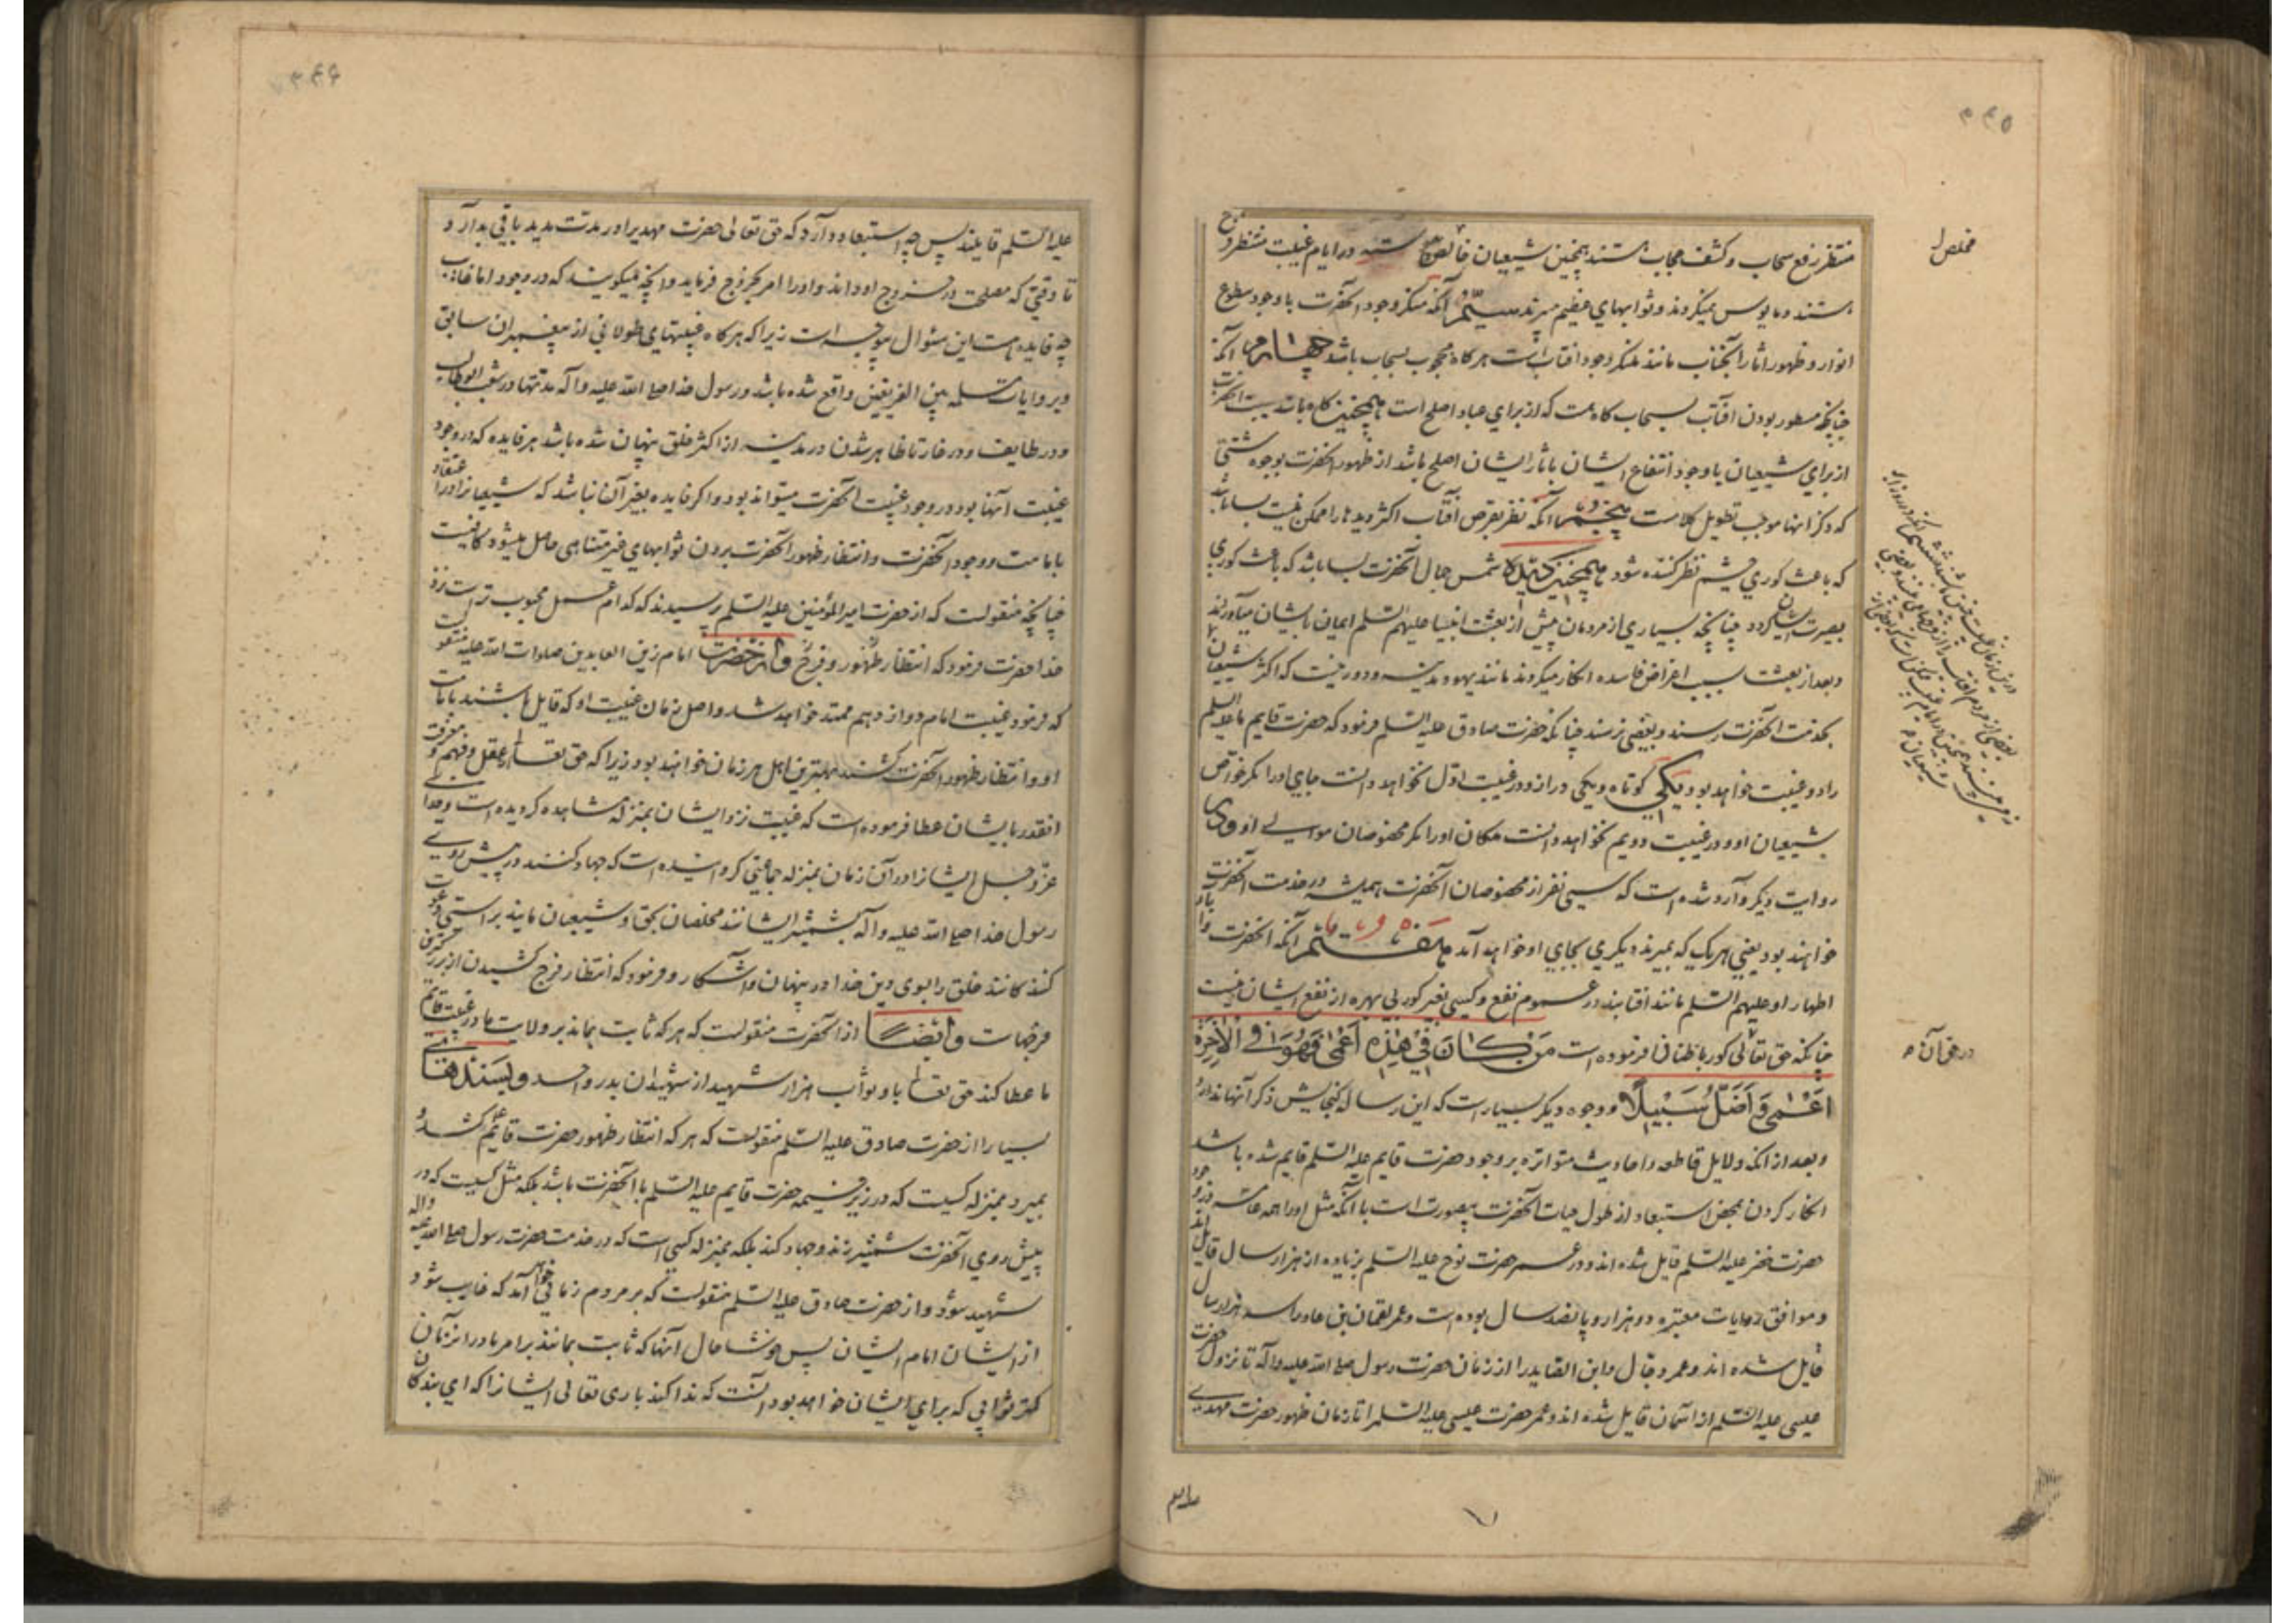 ۳۴۵
مخلص
منتظر رفع سحاب و کشف حجاب هستند همچنین شیعیان خالص در ایام غیبت منتظر فرج
هستند و مایوس نمیگردند و ثوابهای عظیم میبرند سیّم آنکه منکر وجود آنحضرت با وجود سطوع
انوار و ظهور آثار آنجناب مانند منکر وجود افتاب است هرگاه محجوب بسحاب باشد چهارم آنکه
چنانچه مستور بودن افتاب بسحاب گاه هست که از برای عباد اصلح است همچنین گاه باشد غیبت آنحضرت
از برای شیعیان با وجود انتفاع ایشان باثار ایشان اصلح باشد از ظهور آنحضرت بوجوه شتی
که ذکر انها موجب تطویل کلامست پنجم آنکه نظر بقرص افتاب اکثر دیدها را ممکن نیست بسا باشد
که باعث کوری چشم نظر کننده شود همچنین دیدن شمس جمال آنحضرت بسا باشد که باعث کوری
بصیرت ایشان گردد چنانچه بسیاری از مردمان پیش از بعثت انبیا علیهم السّلم ایمان بایشان میآوردند
و بعد از بعثت بسبب اغراض فاسده انکار میکردند مانند یهود مدینه و دور نیست که اکثر شیعیان
بخدمت آنحضرت رسند و بعضی نرسند چنانکه حضرت صادق علیه السّلم فرمود که حضرت قایم علیه السلم
را دو غیبت خواهد بود یکی کوتاه و یکی دراز و در غیبت اوّل نخواهد دانست جای او را مگر خواص
شیعیان او و در غیبت دویم نخواهد دانست مکان او را مگر مخصوصان موالی او و در
روایت دیگر وارد شده است که سی نفر از مخصوصان آنحضرت همیشه در خدمت آنحضرت
خواهند بود یعنی هر یک که بمیرد دیگری بجای او خواهد آمد هفتم آنکه آنحضرت و ابا
اطهار او علیهم السّلم مانند افتابند در عموم نفع و کسی بغیر کور بی بهره از نفع ایشان نیست
چنانکه حق تعالی کور باطنان فرموده است مَنْ كَانَ فِي هٰذِهِ أَعْمَىٰ فَهُوَ فِي الْآخِرَةِ
در حق آن
أَعْمَىٰ وَأَضَلُّ سَبِيلًا و وجوه دیگر بسیار است که این رساله گنجایش ذکر آنها ندارد
و بعد از آنکه دلایل قاطعه و احادیث متواتره بر وجود حضرت قایم علیه السّلم قایم شده باشد
انکار کردن بمحض استبعاد از طول حیات آنحضرت بیصورت است با آنکه مثل او را همه عامّه در وجود
حضرت خضر علیه السّلم قایل شده اند و در عمر حضرت نوح علیه السّلم بزیاده از هزار سال قایلند
و موافق روایات معتبره دو هزار و پانصد سال بوده است و عمر لقمان بن عاد را سه هزار سال
قایل شده اند و عمر دجّال و ابن الصّاید را از زمان حضرت رسول صلی الله علیه و آله تا نزول حضرت
عیسی علیه السّلم از آسمان قایل شده اند و عمر حضرت عیسی علیه السّلم را تا زمان ظهور حضرت مهدی
۳۴۶
علیه السّلم قایلند پس چه استبعاد دارد که حق تعالی حضرت مهدیرا در مدّت مدید باقی بدارد و
تا وقتی که مصلحت در خروج او داند و او را امر بخروج فرماید و آنچه میگویند که در وجود امام غایب
چه فایده است این سئوال بیوجه است زیرا که هرگاه غیبتهای طولانی از پیغمبران سابق
بروایات مسلّمه بین الفریقین واقع شده باشد و رسول خدا صلی الله علیه و آله مدّتها در شعب ابوطالب
و در طایف و در غار تا ظاهر شدن در مدینه از اکثر خلق پنهان شده باشد هر فایده که در وجود
غیبت آنها بود در وجود غیبت آنحضرت میتواند بود و اگر فایده بغیر آن نباشد که شیعیانرا در اعتقاد
بامامت و وجود آنحضرت و انتظار ظهور آنحضرت بردن ثوابهای غیر متناهی حاصل میشود کافیست
چنانچه منقولست که از حضرت امیر المؤمنین علیه السّلم پرسیدند که کدام عمل محبوب تر است نزد
خدا حضرت فرمود که انتظار ظهور و فرج و از حضرت امام زین العابدین صلوات الله علیه منقولست
که فرمود غیبت امام دوازدهم ممتد خواهد شد و اهل زمان غیبت او که قایل باشند بامامت
او و انتظار ظهور آنحضرت کشند بهترین اهل هر زمان خواهند بود زیرا که حق تعالی از عقل و فهم و معرفت
آنقدر بایشان عطا فرموده است که غیبت نزد ایشان بمنزله مشاهده گردیده است و خدای
عزّ و جلّ ایشانرا در آن زمان بمنزله جماعتی گردانیده است که جهاد کنند در پیش روی
رسول خدا صلی الله علیه و آله بشمشیر ایشانند مخلصان بحق و شیعیان مایند براستی و دعوت
کنندکانند خلق را بسوی دین خدا در پنهان و آشکار و فرمود که انتظار فرج کشیدن از بزرگترین
فرجهاست و ایضاً از آنحضرت منقولست که هر که ثابت بماند بر ولایت ما در غیبت قایم
ما عطا کند حق تعالی باو ثواب هزار شهید از شهیدان بدر و احد و بسندهای
بسیار از حضرت صادق علیه السّلم منقولست که هر که انتظار ظهور حضرت قایم کشد و
بمیرد بمنزله کسیست که در زیر خیمه حضرت قایم علیه السّلم با آنحضرت باشد بلکه مثل کسیست که در
پیش روی آنحضرت شمشیر زند و جهاد کند بلکه بمنزله کسی است که در خدمت حضرت رسول صلی الله علیه و آله
شهید شود و از حضرت صادق علیه السّلم منقولست که بر مردم زمانی خواهد آمد که غایب شود
از ایشان امام ایشان پس خوشا حال آنها که ثابت بمانند بر امر ما در آنزمان
کمتر ثوابی که برای ایشان خواهد بود آنست که ندا کند باری تعالی ایشانرا که ای بندکان